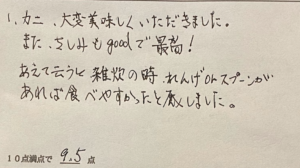 1. カニ、大変美味しくいただきました。
また、さしみもgoodで最高!
あえて云うと雑炊の時れんげorスプーンが
あれば食べやすかったと感しました。
10点満点で 9.5 点